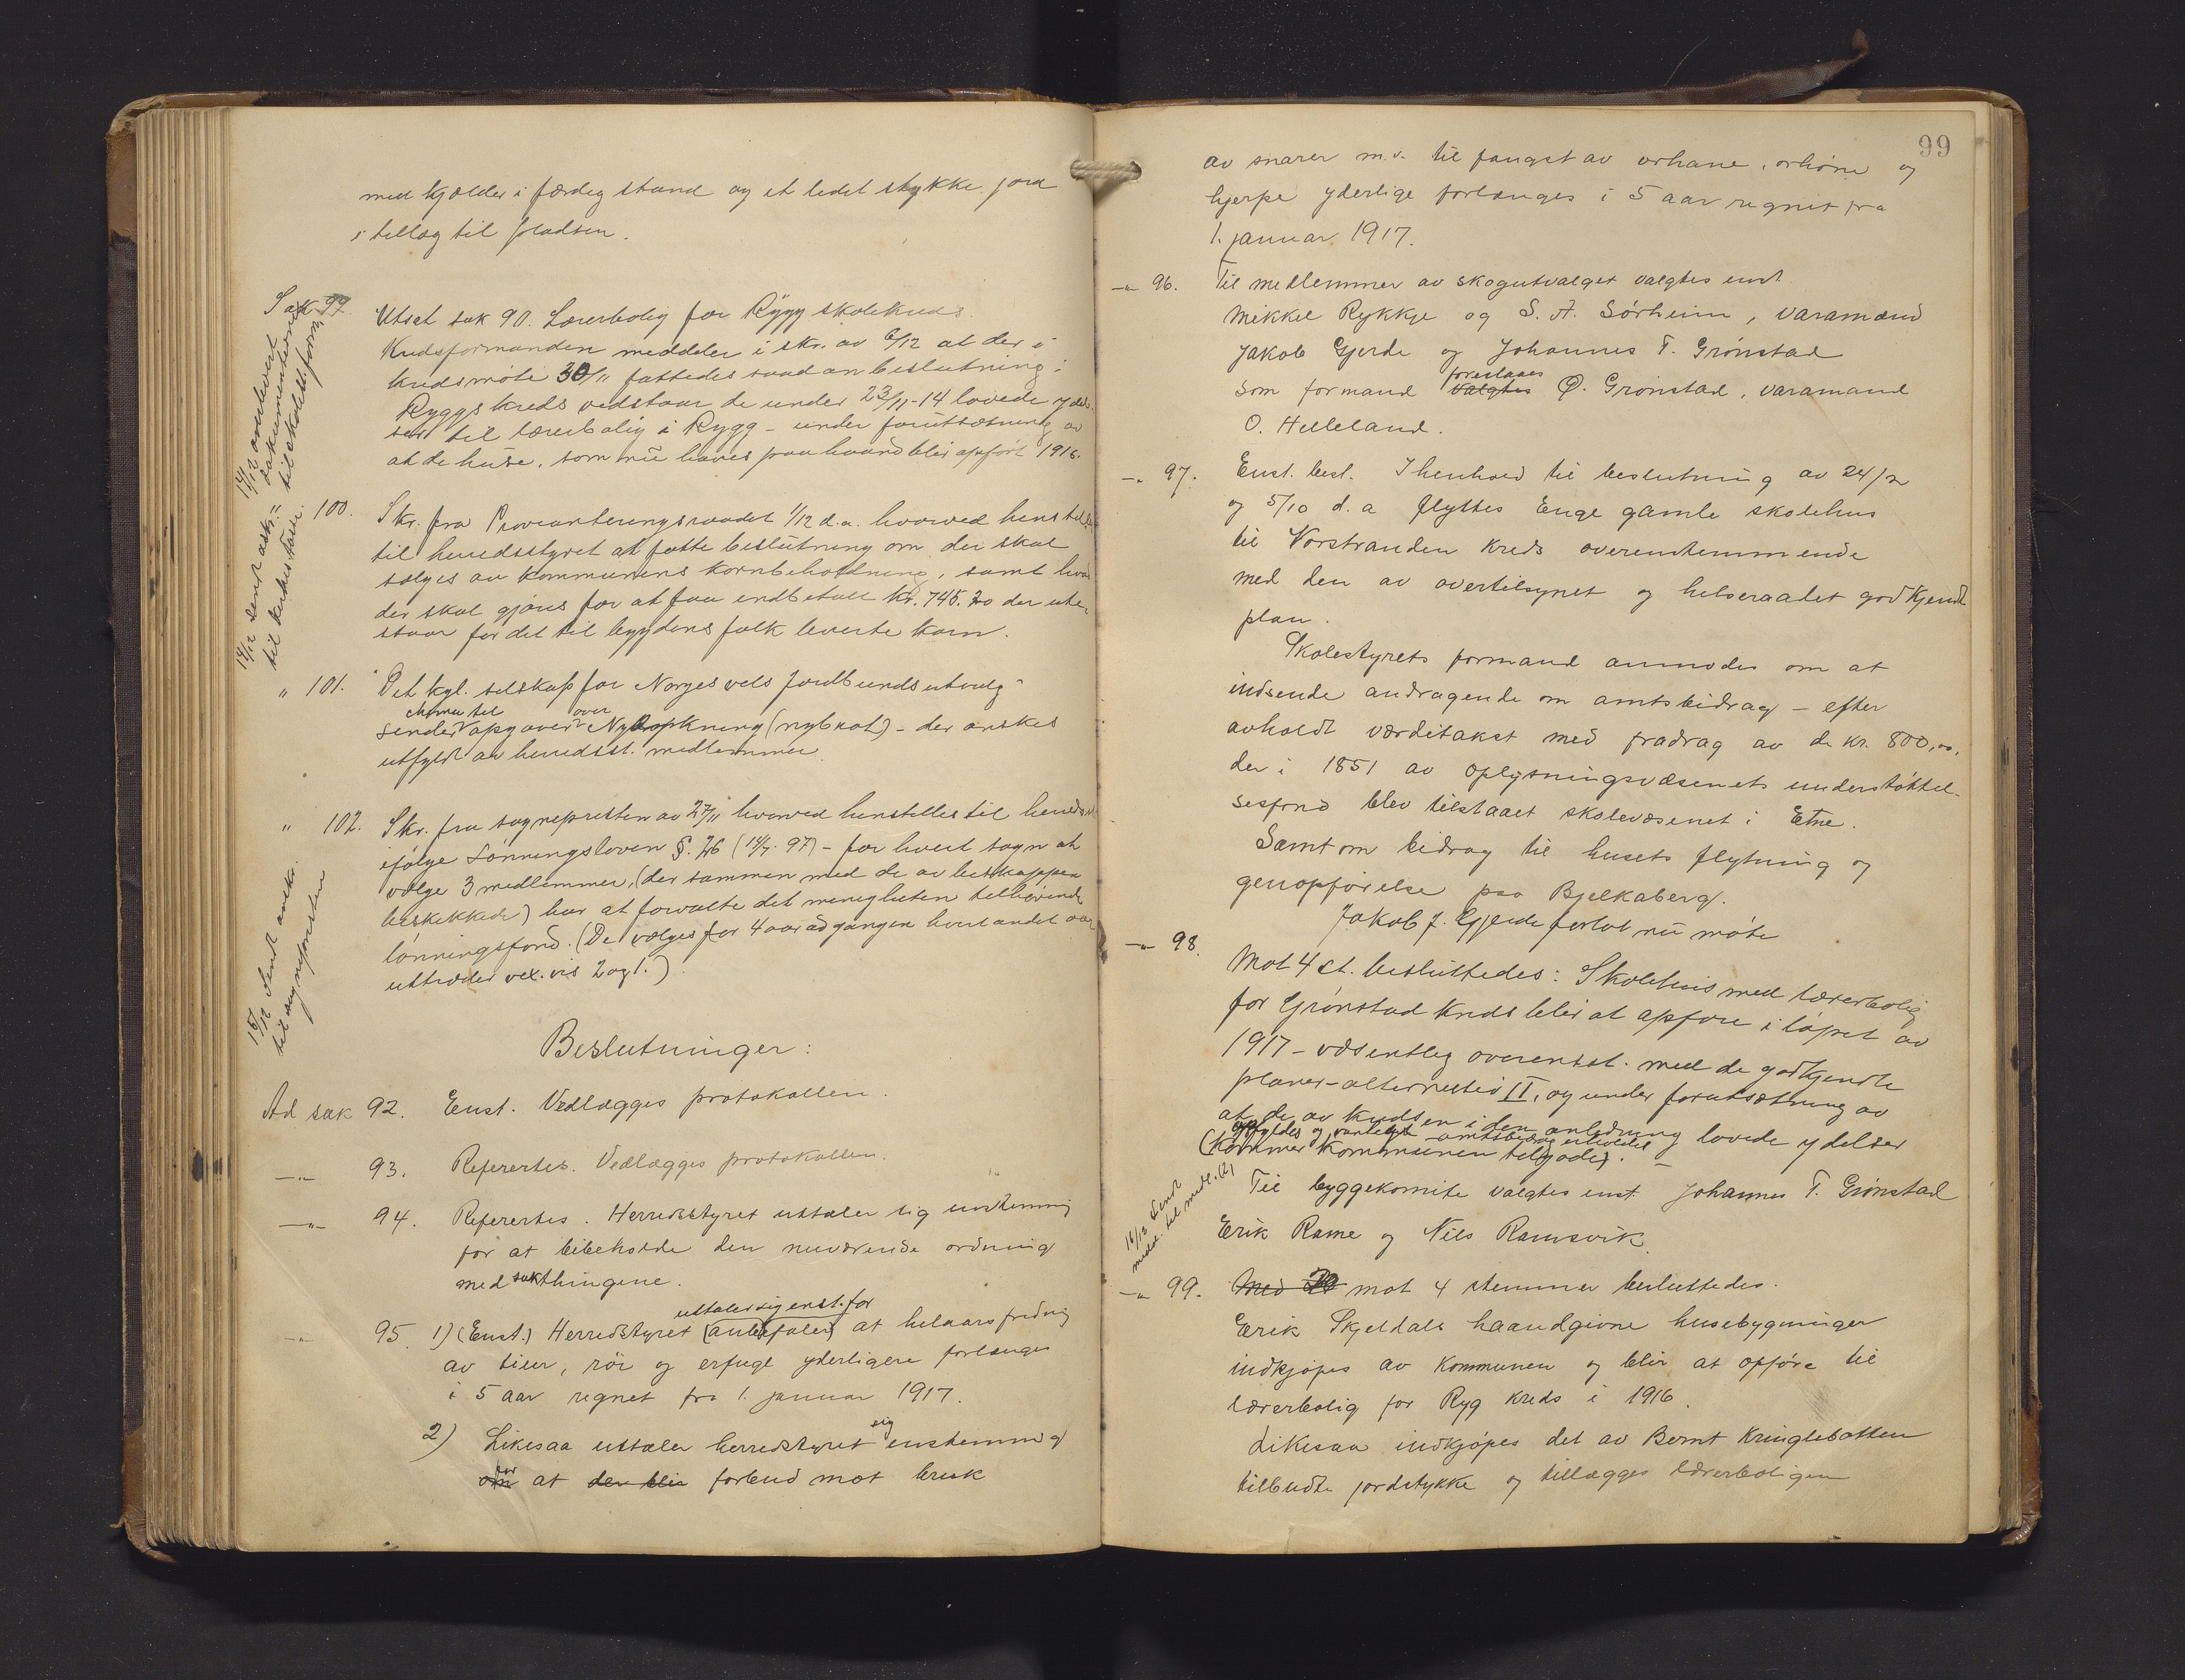 med kjælder i færdig stand og et ledet stykke jord
i tillæg til pladsen.
Sak 99. Utsat sak 90. Lærerbolig for Rygg skolekreds.
Kredsformanden meddeler i skr. av 6/12 at der i
kredsmøte 30/11 fattedes saadan beslutning:
Ryggs kreds vedstaar de under 23/11-14 lovede ydel-
ser til lærerbolig i Rygg - under forutsætning av
at de huse, som nu haves paa haand blir opført 1916.
14/12 overlevert dokumenterne til skolestf.form.
100. Skr. fra Provianteringsraadet 1/12 d.a. hvorved henstilles
til herredsstyret at fatte beslutning om der skal
sælges av kommunens kornbeholdning, samt hvad
der skal gjøres for at faa indbetalt kr. 745.20 der ute-
staar for det til bygdens folk leverte korn.
14/12 Sendt utskr.
" 101. "Det kgl. selskap for Norges vels Jordbundsutvalg"
sender skema til opgaver over Nydyrkning (nybrot) - der ønskes
utfyldt av herredsst. medlemmer.
" 102. Skr. fra sognepresten av 27/11 hvorved henstilles til herredsst.
ifølge Lønningsloven §. 26 (14/7. 97) - for hvert sogn at
vælge 3 medlemmer, (der sammen med de av biskoppen
beskikkede) har at forvalte det menigheten tilhørende
lønningsfond. (De vælges for 4 aar ad gangen hvert andet aar
uttræder vex.vis 2 og 1.)
15/12 Sendt utskr. til sognepresten
Beslutninger:
Ad sak 92. Enst. Vedlægges protokollen.
-"- 93. Refereres. Vedlægges protokollen.
-"- 94. Refertes. Herredsstyret uttaler sig enstemmig
for at bibeholde den nuværende ordning
med sakthingene.
-"- 95. 1) (Enst.) Herredstyret (anbefaler) uttaler sig enst. for at helaarsfredning
av tiur, röi og erfugl yderligere forlænges
i 5 aar regnet fra 1. januar 1917.
2) Likesaa uttaler herredstyret sig enstemmig
om for at der blir forbud mot bruk
99
av snarer m.v. til fangst av orhane, orhøne og
hjerpe yderlige forlænges i 5 aar regnet fra
1. januar 1917.
-"- 96. Til medlemmer av skogutvalget valgtes enst.
Mikkel Rykkje og S. A. Sørheim, varamænd
Jakob Gjerde og Johannes T. Grønstad
som formand valgtes foreslaaes Ø. Grønstad, varamand
O. Helleland.
-"- 97. Enst. besl. I henhold til beslutning av 24/2
og 5/10 d. a flyttes Enge gamle skolehus
til Vorstranden kreds overenstemmende
med den av overtilsynet og helseraadet godkjendt
plan.
Skolestyrets formand anmodes om at
indsende andragende om amtsbidrag - efter
avholdt værditakst med fradrag av de kr. 800,00,
der i 1851 av oplysningsvæsenets understøttel-
sesfond blev tilstaaet skolevæsenet i Etne.
Samt om bidrag til husets flytning og
genopførelse paa Bjelkaberg.
Jakob J. Gjerde forlot nu møte
-"- 98. Mot 4 st. besluttedes: Skolehus med lærerbolig
for Grønstad kreds blir at opføre i løpet av
1917 - væsentlig overenst. med de godkjendte
planer - alternativ II, og under forutsætning av
at de av kredsen i den anledning lovede ydelser
opfyldes og vanligt amtsbidrag erholdes
(kommer kommunen tilgode).
Til byggekomite valgtes enst. Johannes T. Grønstad
Erik Rame og Nils Ramsvik.
16/12 Sendt meddel. til medl. (2)
-"- 99. Med 20 mot 4 stemmer besluttedes.
Erik Skjeldals haandgivne husebygninger
indkjøpes av kommunen og blir at opføre til
lærerbolig for Ryg kreds i 1916.
Likesaa indkjøpes det av Bernt Kringlebotten
tilbudte jordstykke og tillægges lærerboligen